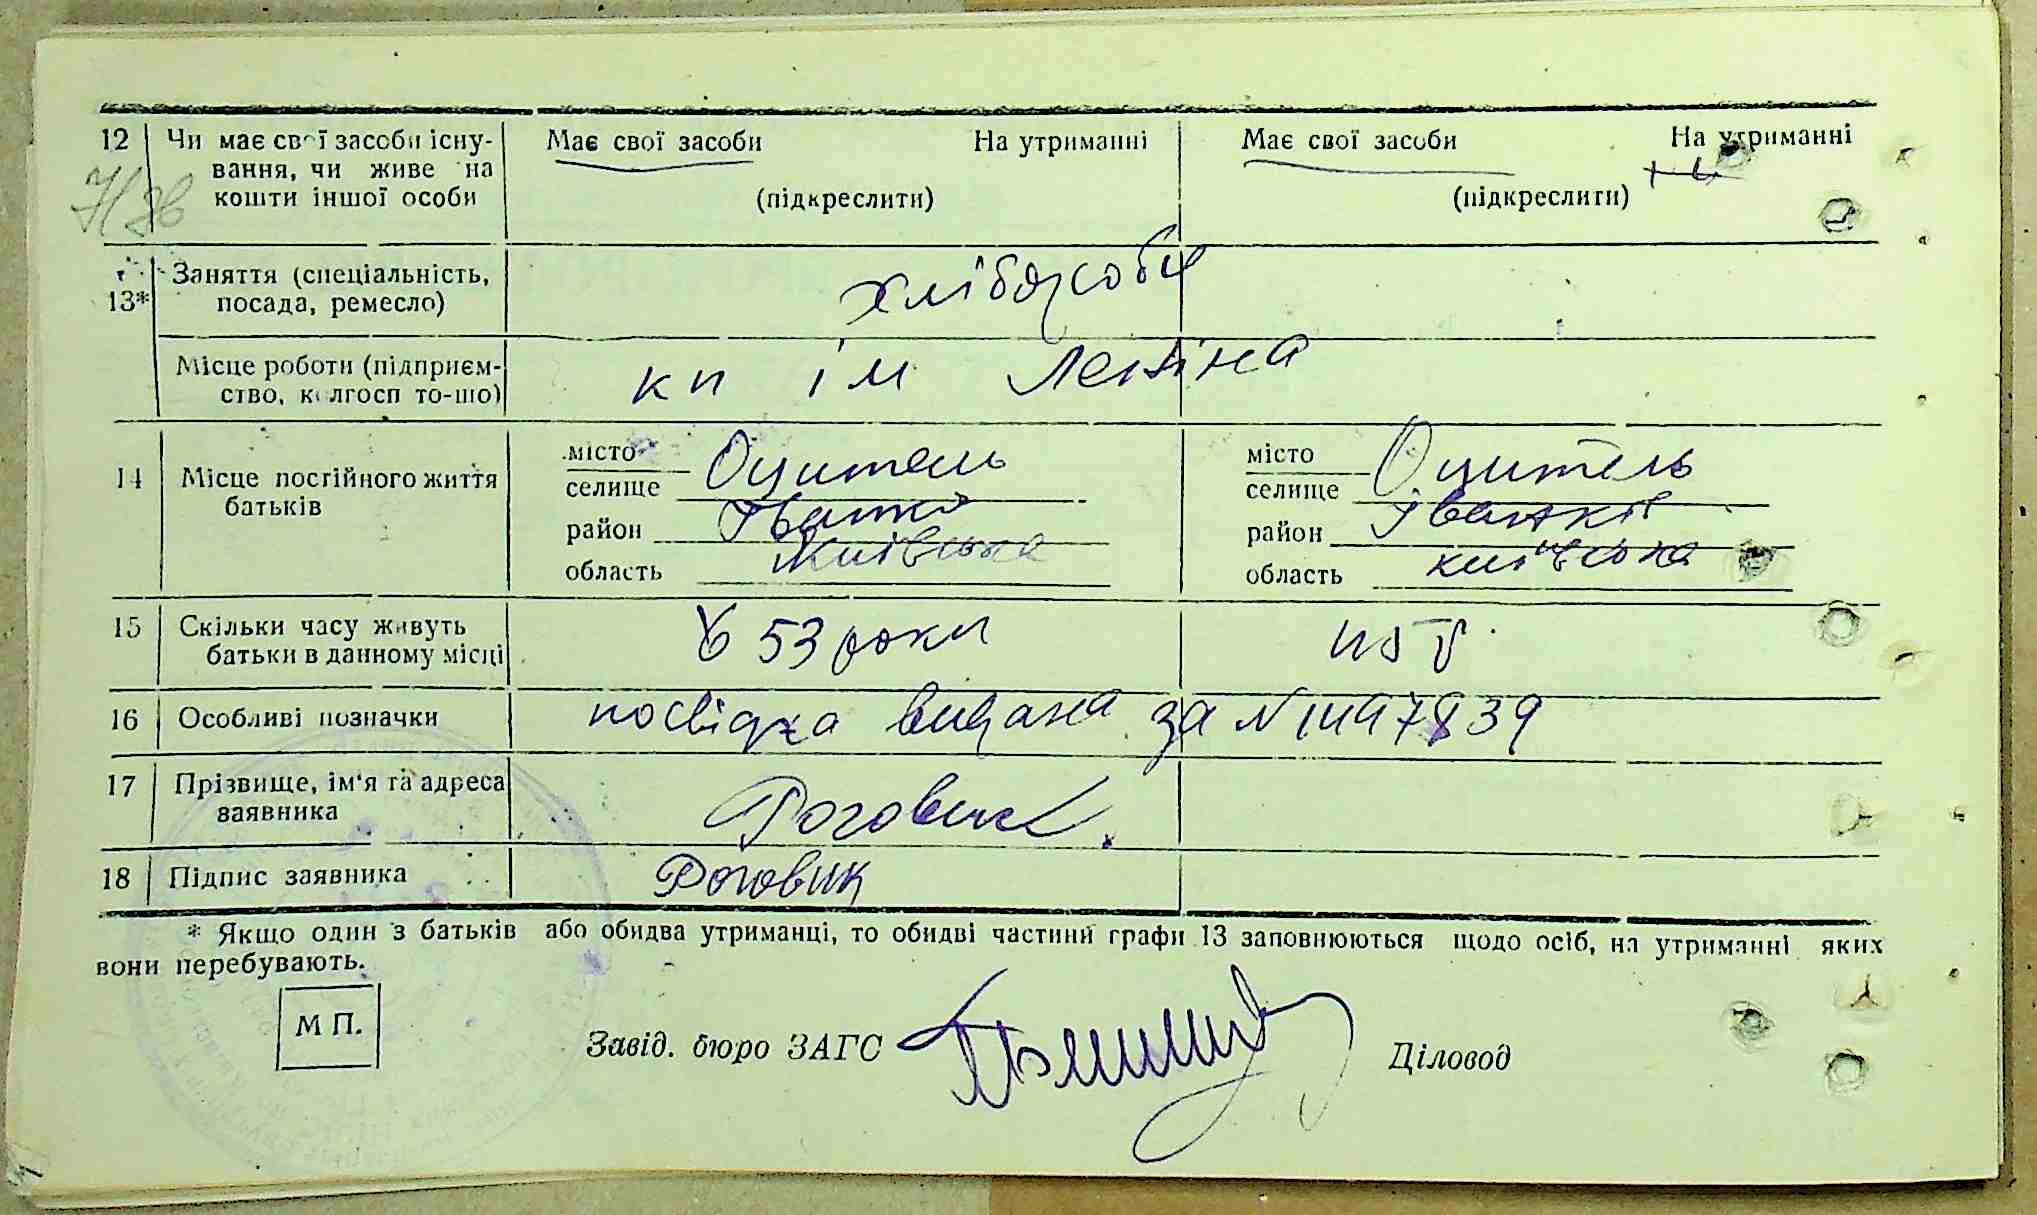 12 Чи має свої засоби існу- Має свої засоби На утриманні Має свої засоби На утриманні
вання, чи живе на
кошти іншої особи (підкреслити) (підкреслити)
13* Заняття (спеціальність, хлібороби
посада, ремесло)
Місце роботи (підприєм- кп ім Леніна
ство, колгосп то-що)
14 Місце постійного життя місто Оцитель місто Оцитель
батьків селище селище
район район
область Київська область київська
15 Скільки часу живуть 53 роки
батьки в данному місці
16 Особливі позначки посвідка видана за N
17 Прізвище, ім'я та адреса Роговик
заявника
18 Підпис заявника Роговик
* Якщо один з батьків або обидва утриманці, то обидві частини графи 13 заповнюються щодо осіб, на утриманні яких
вони перебувають.
М П.
Завід. бюро ЗАГС Діловод